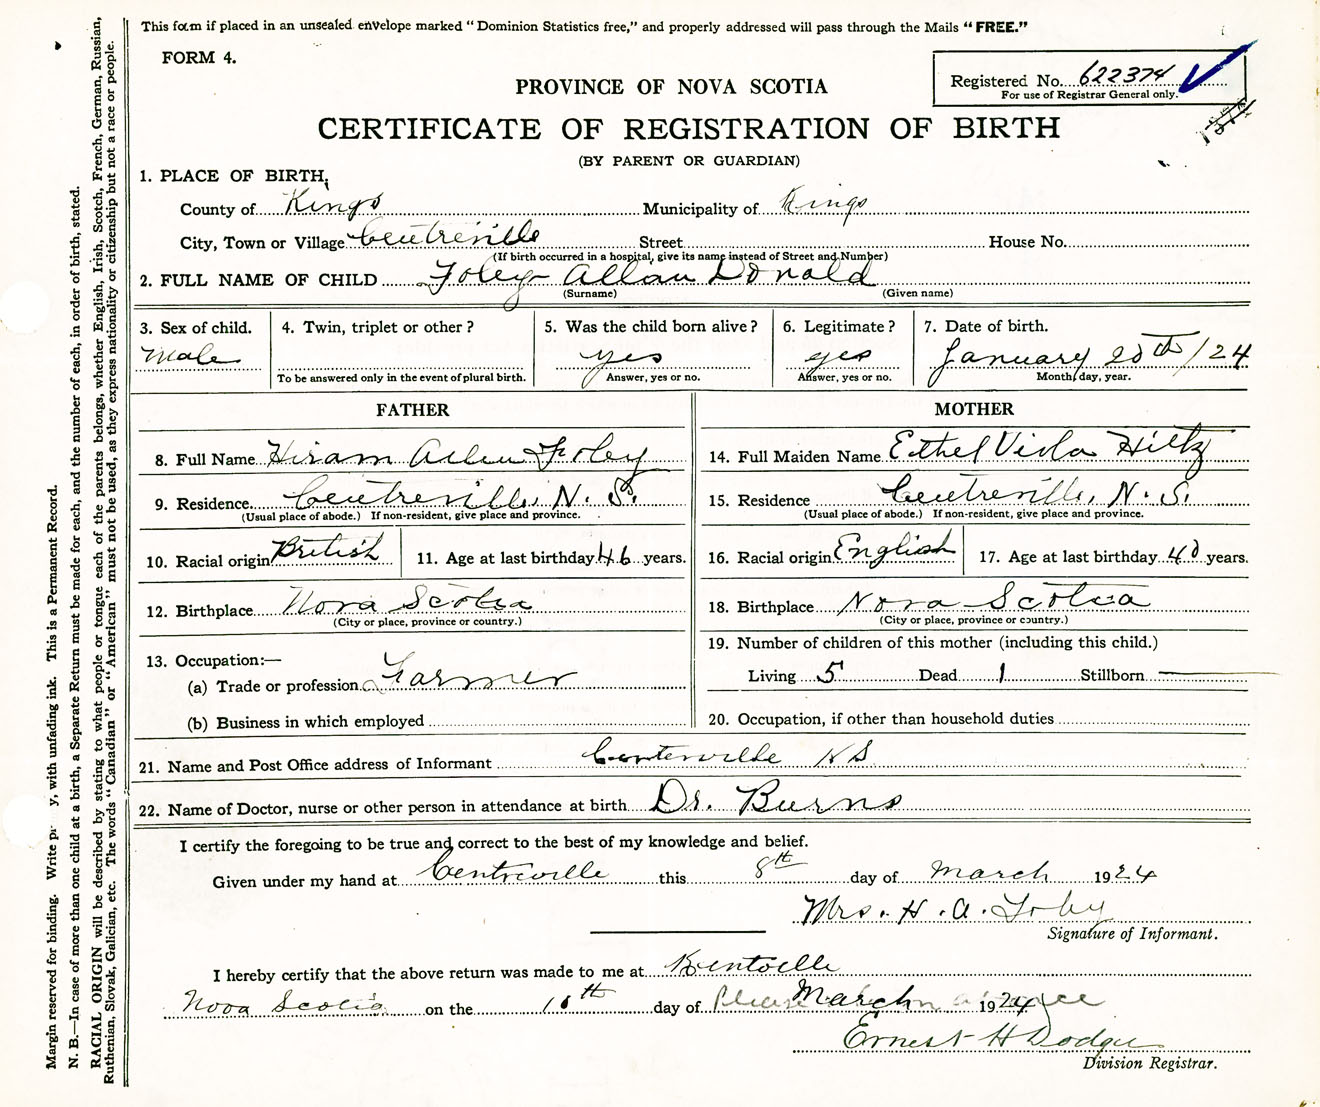 This form if placed in an unsealed envelope marked "Dominion Statistics free," and properly addressed will pass through the Mails "FREE."
FORM 4.
Registered No. 622374
For use of Registrar General only.
PROVINCE OF NOVA SCOTIA
CERTIFICATE OF REGISTRATION OF BIRTH
(BY PARENT OR GUARDIAN)
1. PLACE OF BIRTH,
County of Kings Municipality of Kings
City, Town or Village Centreville Street House No.
(If birth occurred in a hospital, give its name instead of Street and Number)
2. FULL NAME OF CHILD Foley Allan Donald
(Surname) (Given name)
3. Sex of child. 4. Twin, triplet or other? 5. Was the child born alive? 6. Legitimate? 7. Date of birth.
Male yes yes January 20th/24
To be answered only in the event of plural birth. Answer, yes or no. Answer, yes or no. Month, day, year.
FATHER
8. Full Name Hiram Allen Foley
9. Residence Centreville, N. S.
(Usual place of abode.) If non-resident, give place and province.
10. Racial origin British 11. Age at last birthday 46 years.
12. Birthplace Nova Scotia
(City or place, province or country.)
13. Occupation:—
(a) Trade or profession Farmer
(b) Business in which employed
MOTHER
14. Full Maiden Name Ethel Viola Hiltz
15. Residence Centreville, N. S.
(Usual place of abode.) If non-resident, give place and province.
16. Racial origin English 17. Age at last birthday 40 years.
18. Birthplace Nova Scotia
(City or place, province or country.)
19. Number of children of this mother (including this child.)
Living 5 Dead 1 Stillborn —
20. Occupation, if other than household duties
21. Name and Post Office address of Informant Centerville NS
22. Name of Doctor, nurse or other person in attendance at birth Dr. Burns
I certify the foregoing to be true and correct to the best of my knowledge and belief.
Given under my hand at Centreville this 8th day of March 1924
Mrs. H. A. Foley
Signature of Informant.
I hereby certify that the above return was made to me at Kentville
Nova Scotia on the day of March 1924
Ernest H Dodge
Division Registrar.
Margin reserved for binding. Write y, with unfading ink. This is a Permanent Record.
N. B.—In case of more than one child at a birth, a Separate Return must be made for each, and the number of each, in order of birth, stated.
RACIAL ORIGIN will be described by stating to what people or tongue each of the parents belongs, whether English, Irish, Scotch, French, German, Russian,
Ruthenian, Slovak, Galician, etc. The words "Canadian" or "American" must not be used, as they express nationality or citizenship but not a race or people.